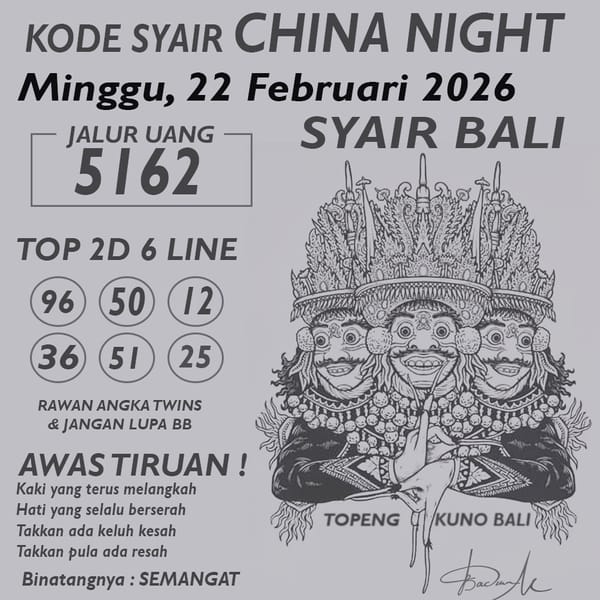 KODE SYAIR CHINA NIGHT
Minggu, 22 Februari 2026
JALUR UANG
5162
SYAIR BALI
TOP 2D 6 LINE
96 50 12
36 51 25
RAWAN ANGKA TWINS
& JANGAN LUPA BB
AWAS TIRUAN !
Kaki yang terus melangkah
Hati yang selalu berserah
Takkan ada keluh kesah
Takkan pula ada resah
Binatangnya : SEMANGAT
TOPENG KUNO BALI